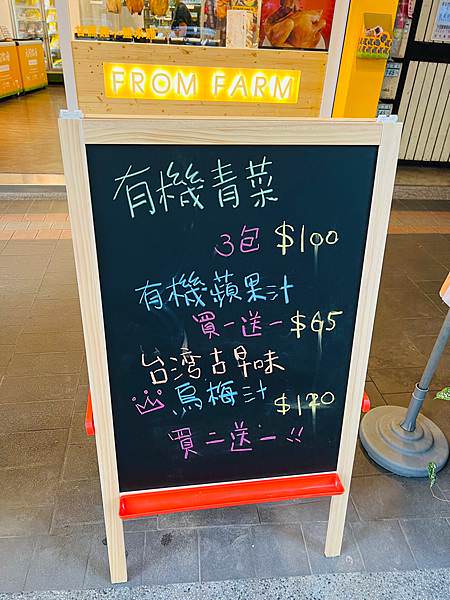 FROM FARM
有機青菜
3包 $100
有機蘋果汁
買一送一 $65
台湾古早味
烏梅汁 $120
買二送一!!